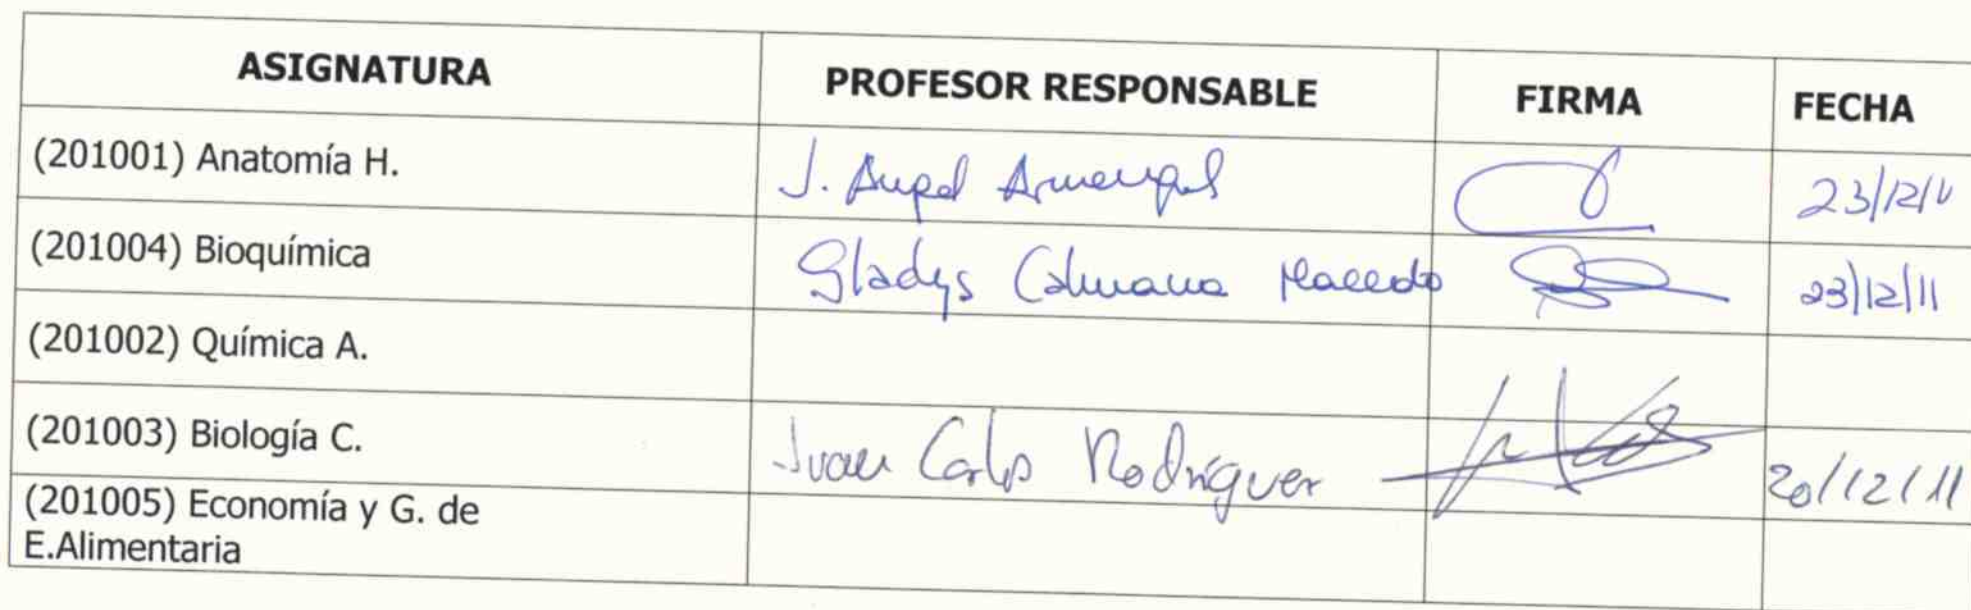 ASIGNATURA PROFESOR RESPONSABLE FIRMA FECHA
(201001) Anatomía H. J. Angel Armengol 23/12/11
(201004) Bioquímica Gladys Macedo 23/12/11
(201002) Química A.
(201003) Biología C. Juan Carlos Rodríguez 20/12/11
(201005) Economía y G. de
E.Alimentaria